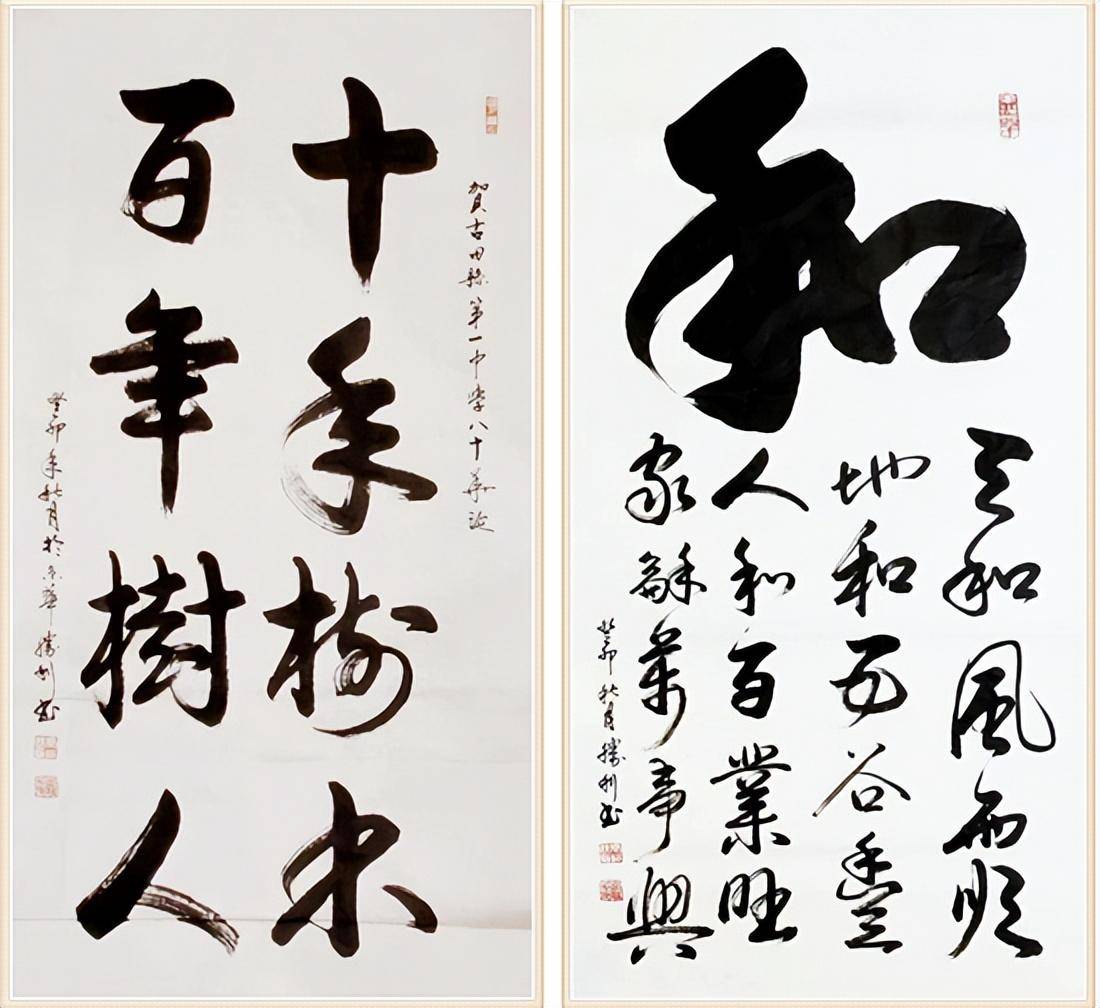 賀古田縣第一中學八十華誕
十年樹木
百年樹人
癸卯年秋月於京華勝利書
和
天和風雨順
地和五谷豐
人和百業旺
家龢萬事興
癸卯秋月勝利書